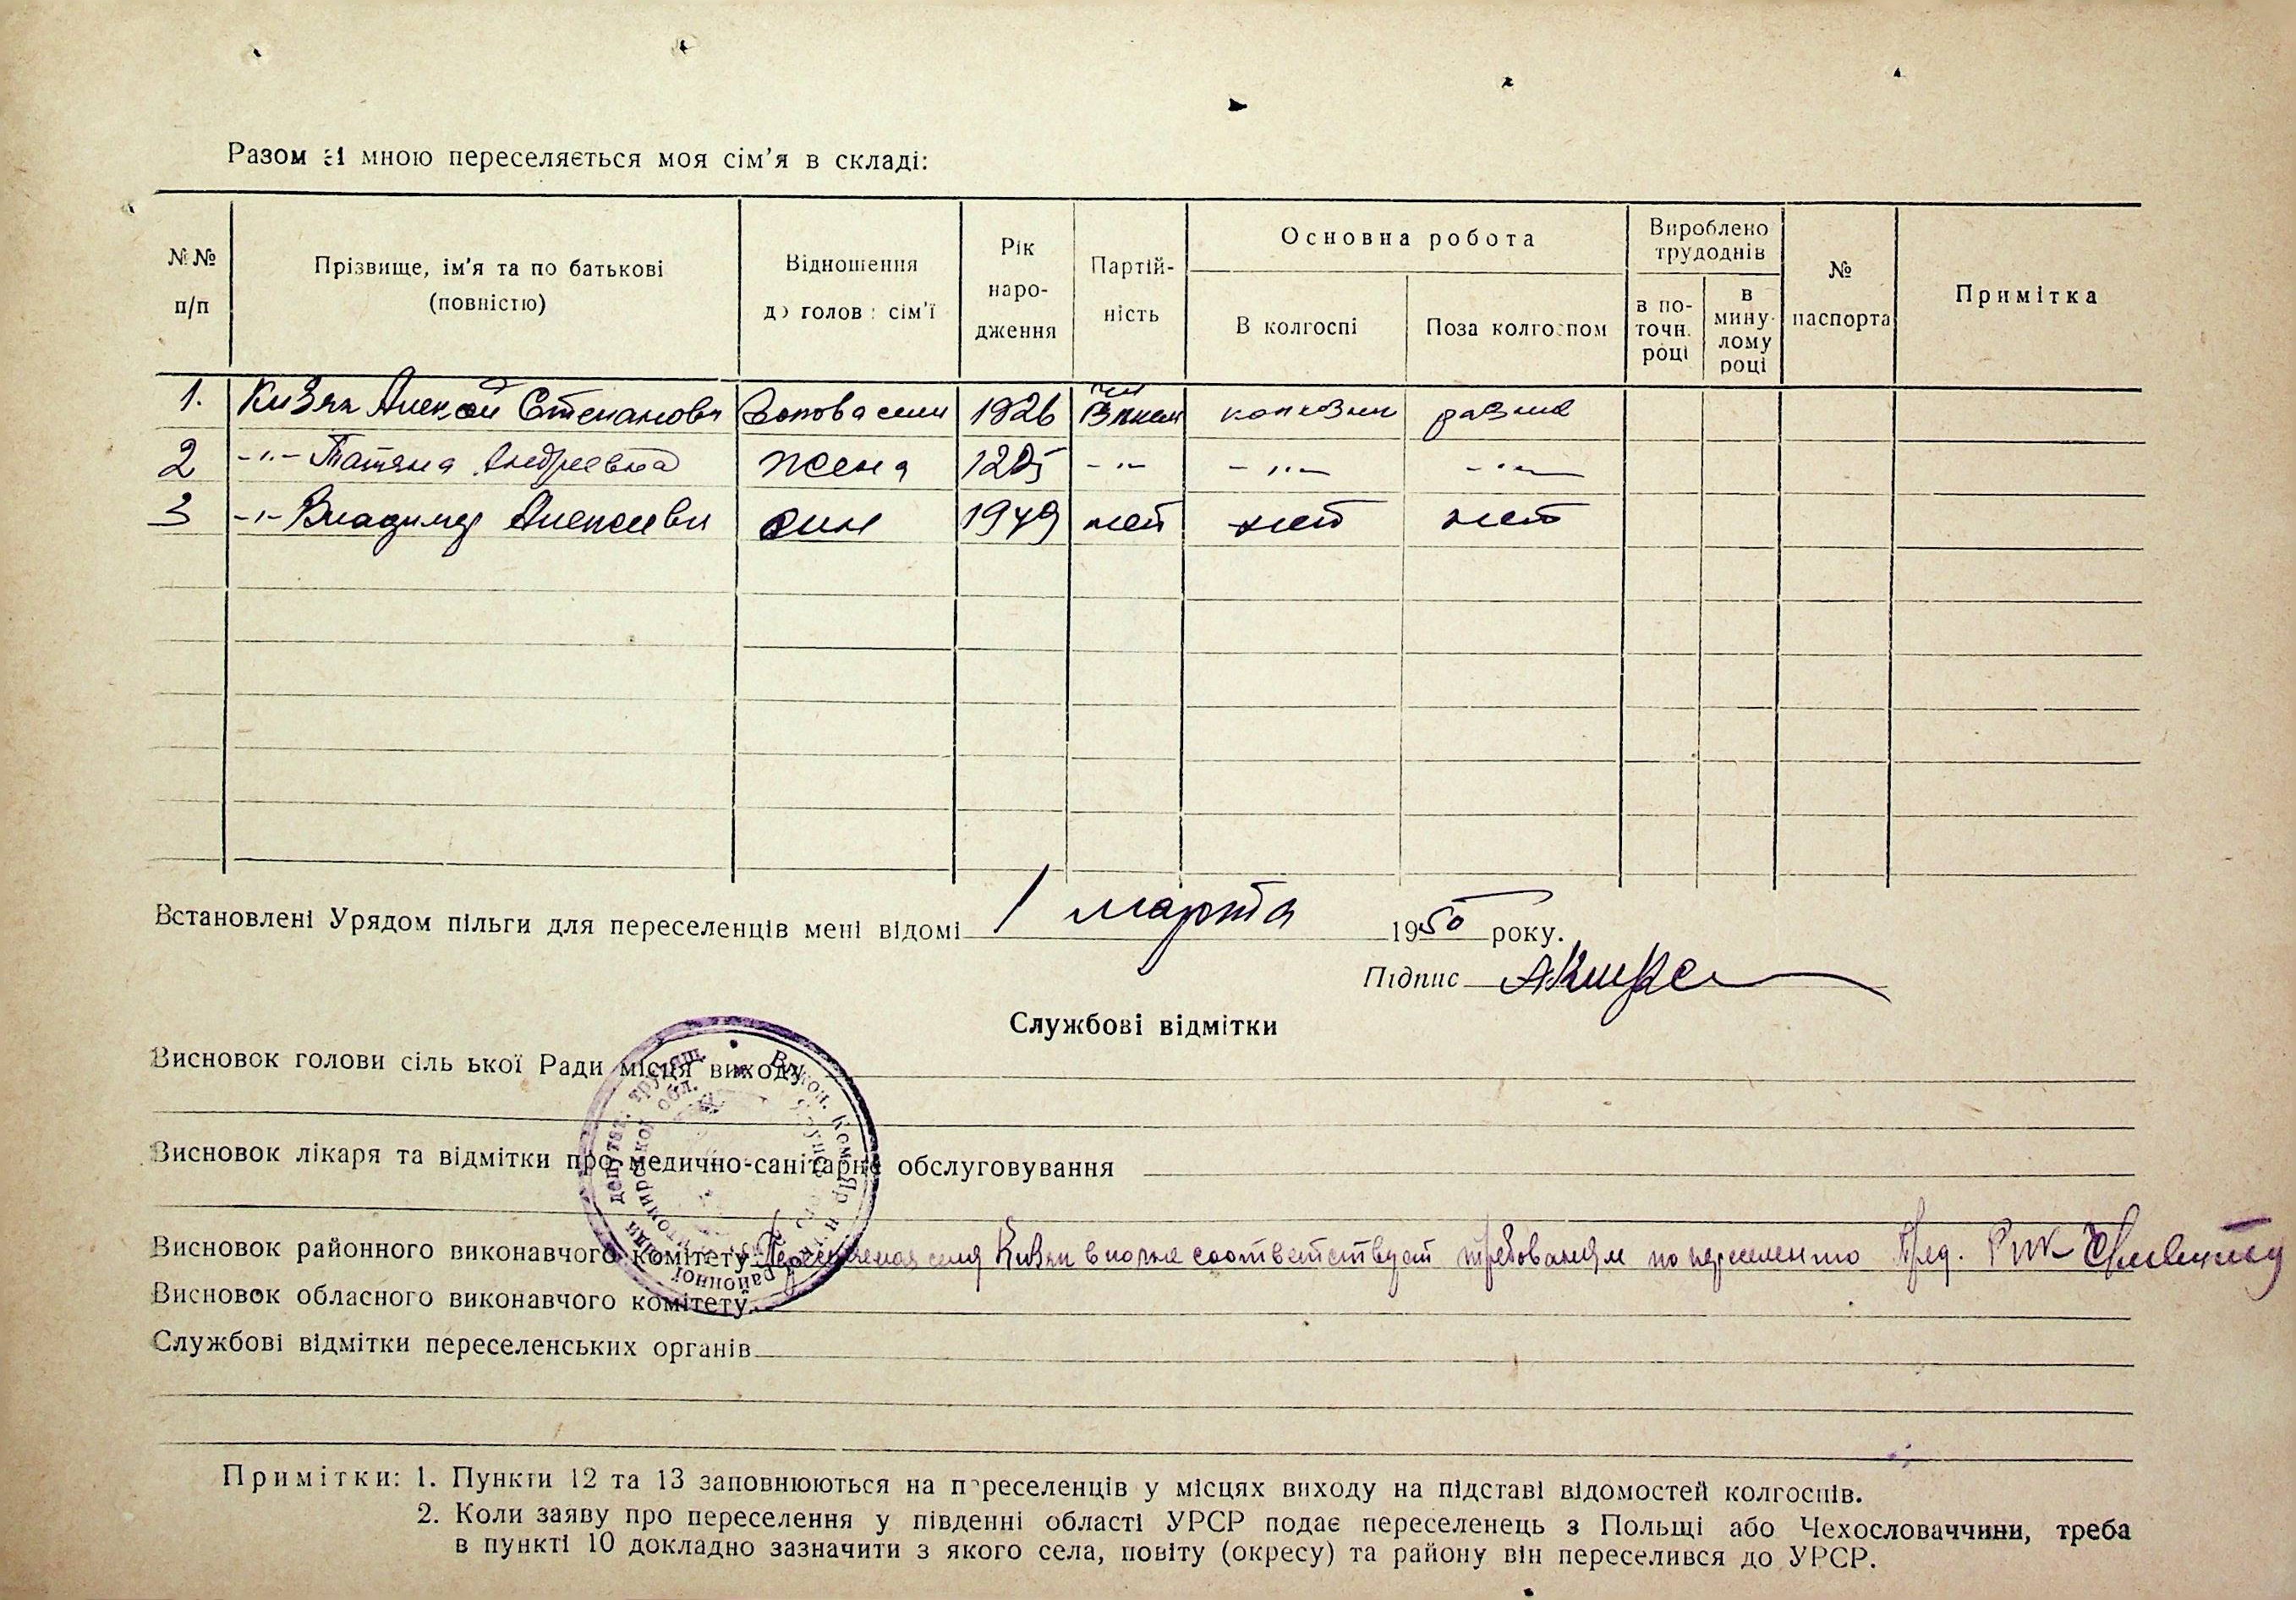 Разом зі мною переселяється моя сім'я в складі:
№№ п/п
Прізвище, ім'я та по батькові (повністю)
Відношення до голови сім'ї
Рік народження
Партійність
Основна робота
В колгоспі
Поза колгоспом
Вироблено трудоднів
в поточн. році
в минулому році
№ паспорта
Примітка
1. Кизян Алексей Степанович 1926 колхозник разные
2 -"- Татяна Андреевна жена 1925 -"- -"- -"-
3 -"- Владимир Алексеевич син 1949 нет нет нет
Встановлені Урядом пільги для переселенців мені відомі 1 марта 1950 року.
Підпис
Службові відмітки
Висновок голови сільської Ради місця виходу
Висновок лікаря та відмітки про медично-санітарне обслуговування
Висновок районного виконавчого комітету Кизян вполне соответствует требованиям по переселению Пред. РИК
Висновок обласного виконавчого комітету
Службові відмітки переселенських органів
Примітки: 1. Пункти 12 та 13 заповнюються на переселенців у місцях виходу на підставі відомостей колгоспів.
2. Коли заяву про переселення у південні області УРСР подає переселенець з Польщі або Чехословаччини, треба
в пункті 10 докладно зазначити з якого села, повіту (окресу) та району він переселився до УРСР.